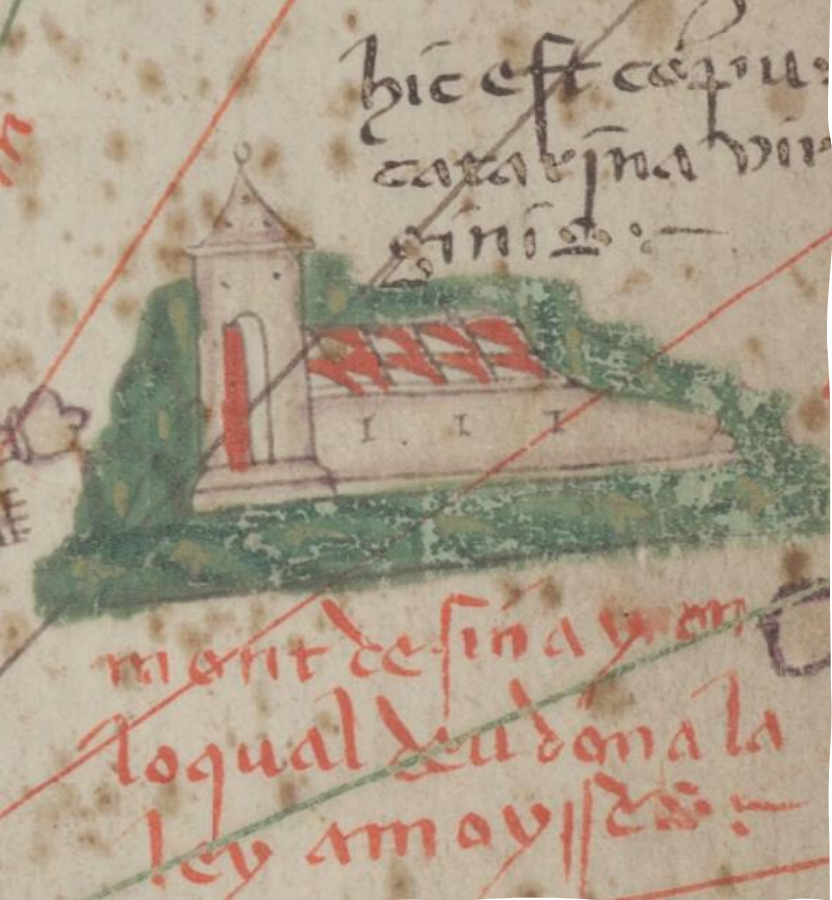 hic est
catarina vir
ginis:—
mont de sinay
loqual deu dona la
ley amoysses:—